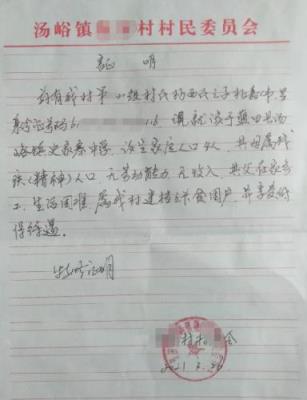 汤峪镇 村村民委员会
证 明
兹有我村第 小组村民杨西民之子杜嘉 ,身
份证号码6 18 现就读于蓝田县汤
峪镇史家寨中学,该生家庭人口4人,其母属残
疾(精神)人口,无劳动能力,无收入,其父在家务
工,生活困难,属我村建档立卡贫困户,并享受低
保待遇。
特此证明
村 会
2021.3.